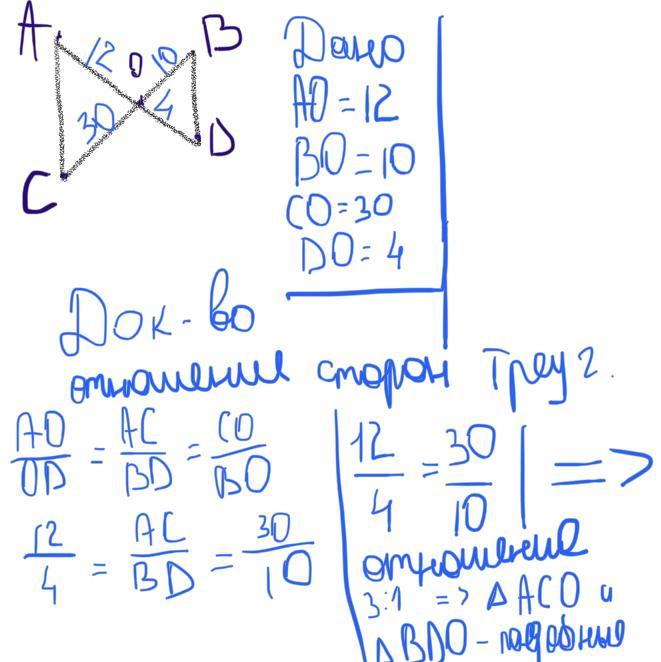 A 12 O 10 B
30 4 D
C
Дано
AO = 12
BO = 10
CO = 30
DO = 4
Док-во
отношение сторон треуг.
AO/OD = AC/BD = CO/BO
12/4 = AC/BD = 30/10
12/4 = 30/10 | =>
отношение
3:1 => △ ACO и
△ BDO - подобные